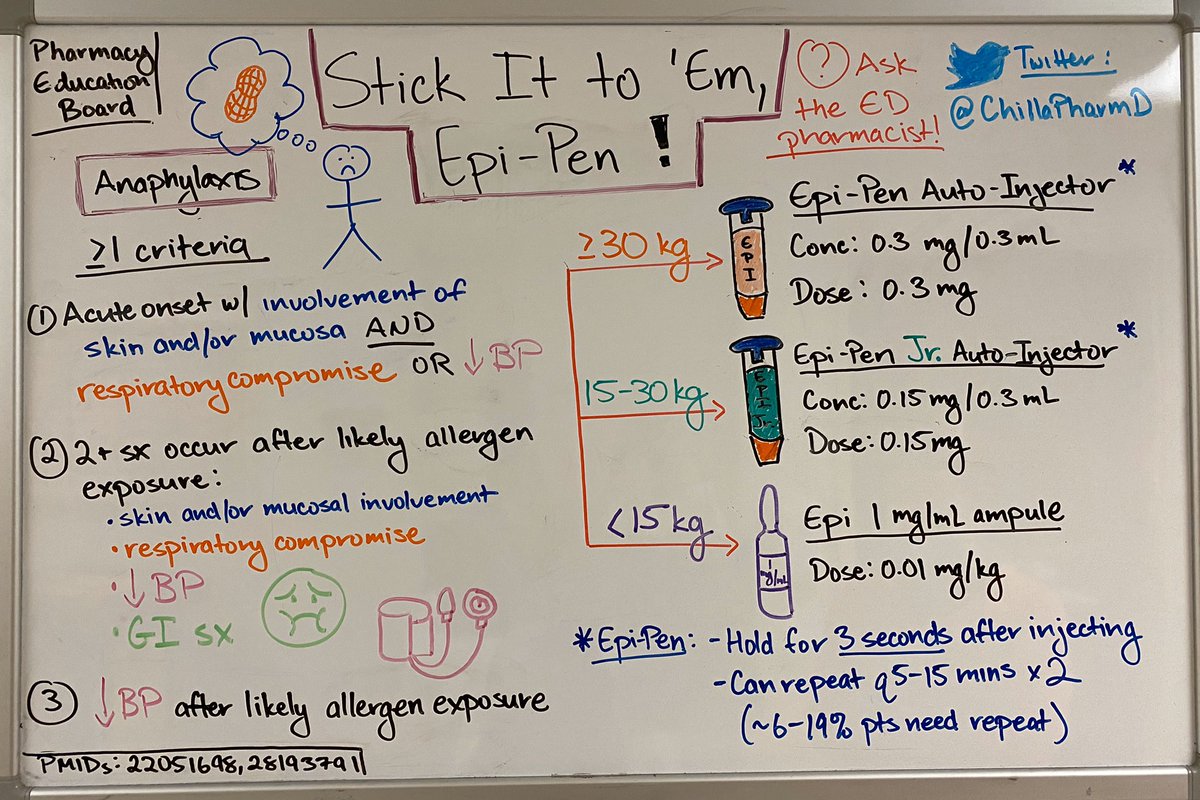 Pharmacy
Education
Board
Stick It to 'Em,
Epi-Pen !
? Ask
the ED
pharmacist!
Twitter:
@ChillaPharmD
Anaphylaxis
≥1 criteria
① Acute onset w/ involvement of
skin and/or mucosa AND
respiratory compromise OR ↓BP
② 2+ sx occur after likely allergen
exposure:
• skin and/or mucosal involvement
• respiratory compromise
• ↓BP
• GI sx
③ ↓BP after likely allergen exposure
PMIDs: 22051698, 28193791
≥30 kg
EPI
Epi-Pen Auto-Injector *
Conc: 0.3 mg/0.3mL
Dose: 0.3 mg
15-30 kg
EPI Jr.
Epi-Pen Jr. Auto-Injector *
Conc: 0.15 mg/0.3 mL
Dose: 0.15mg
<15 kg
1
mg/mL
Epi 1 mg/mL ampule
Dose: 0.01 mg/kg
* Epi-Pen: - Hold for 3 seconds after injecting
- Can repeat q5-15 mins x2
(~6-19% pts need repeat)